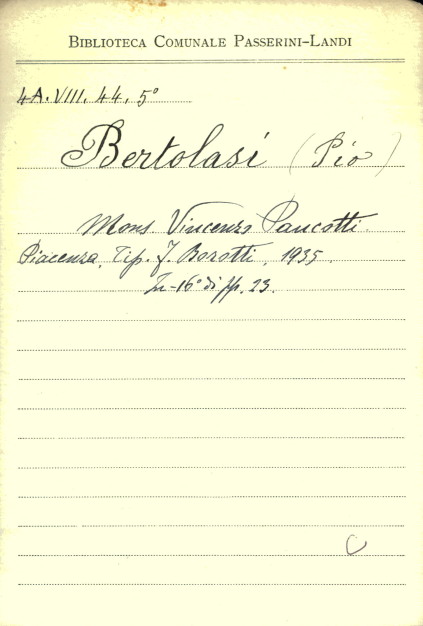 BIBLIOTECA COMUNALE PASSERINI-LANDI
4A. VIII. 44. 5°
Bertolasi (Pio)
Mons Vincenzo Pancotti.
Piacenza, Tip. J. Borotti, 1935.
In-16° di pp. 23.
C